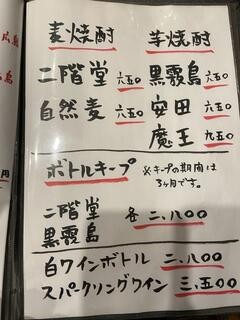 麦焼酎
二階堂 六五〇
自然麦 六五〇
芋焼酎
黒霧島 六五〇
安田 六五〇
魔王 九五〇
ボトルキープ ※キープの期間は3ヶ月です。
二階堂
黒霧島
各 二、八〇〇
白ワインボトル 二、八〇〇
スパークリングワイン 三、五〇〇
円